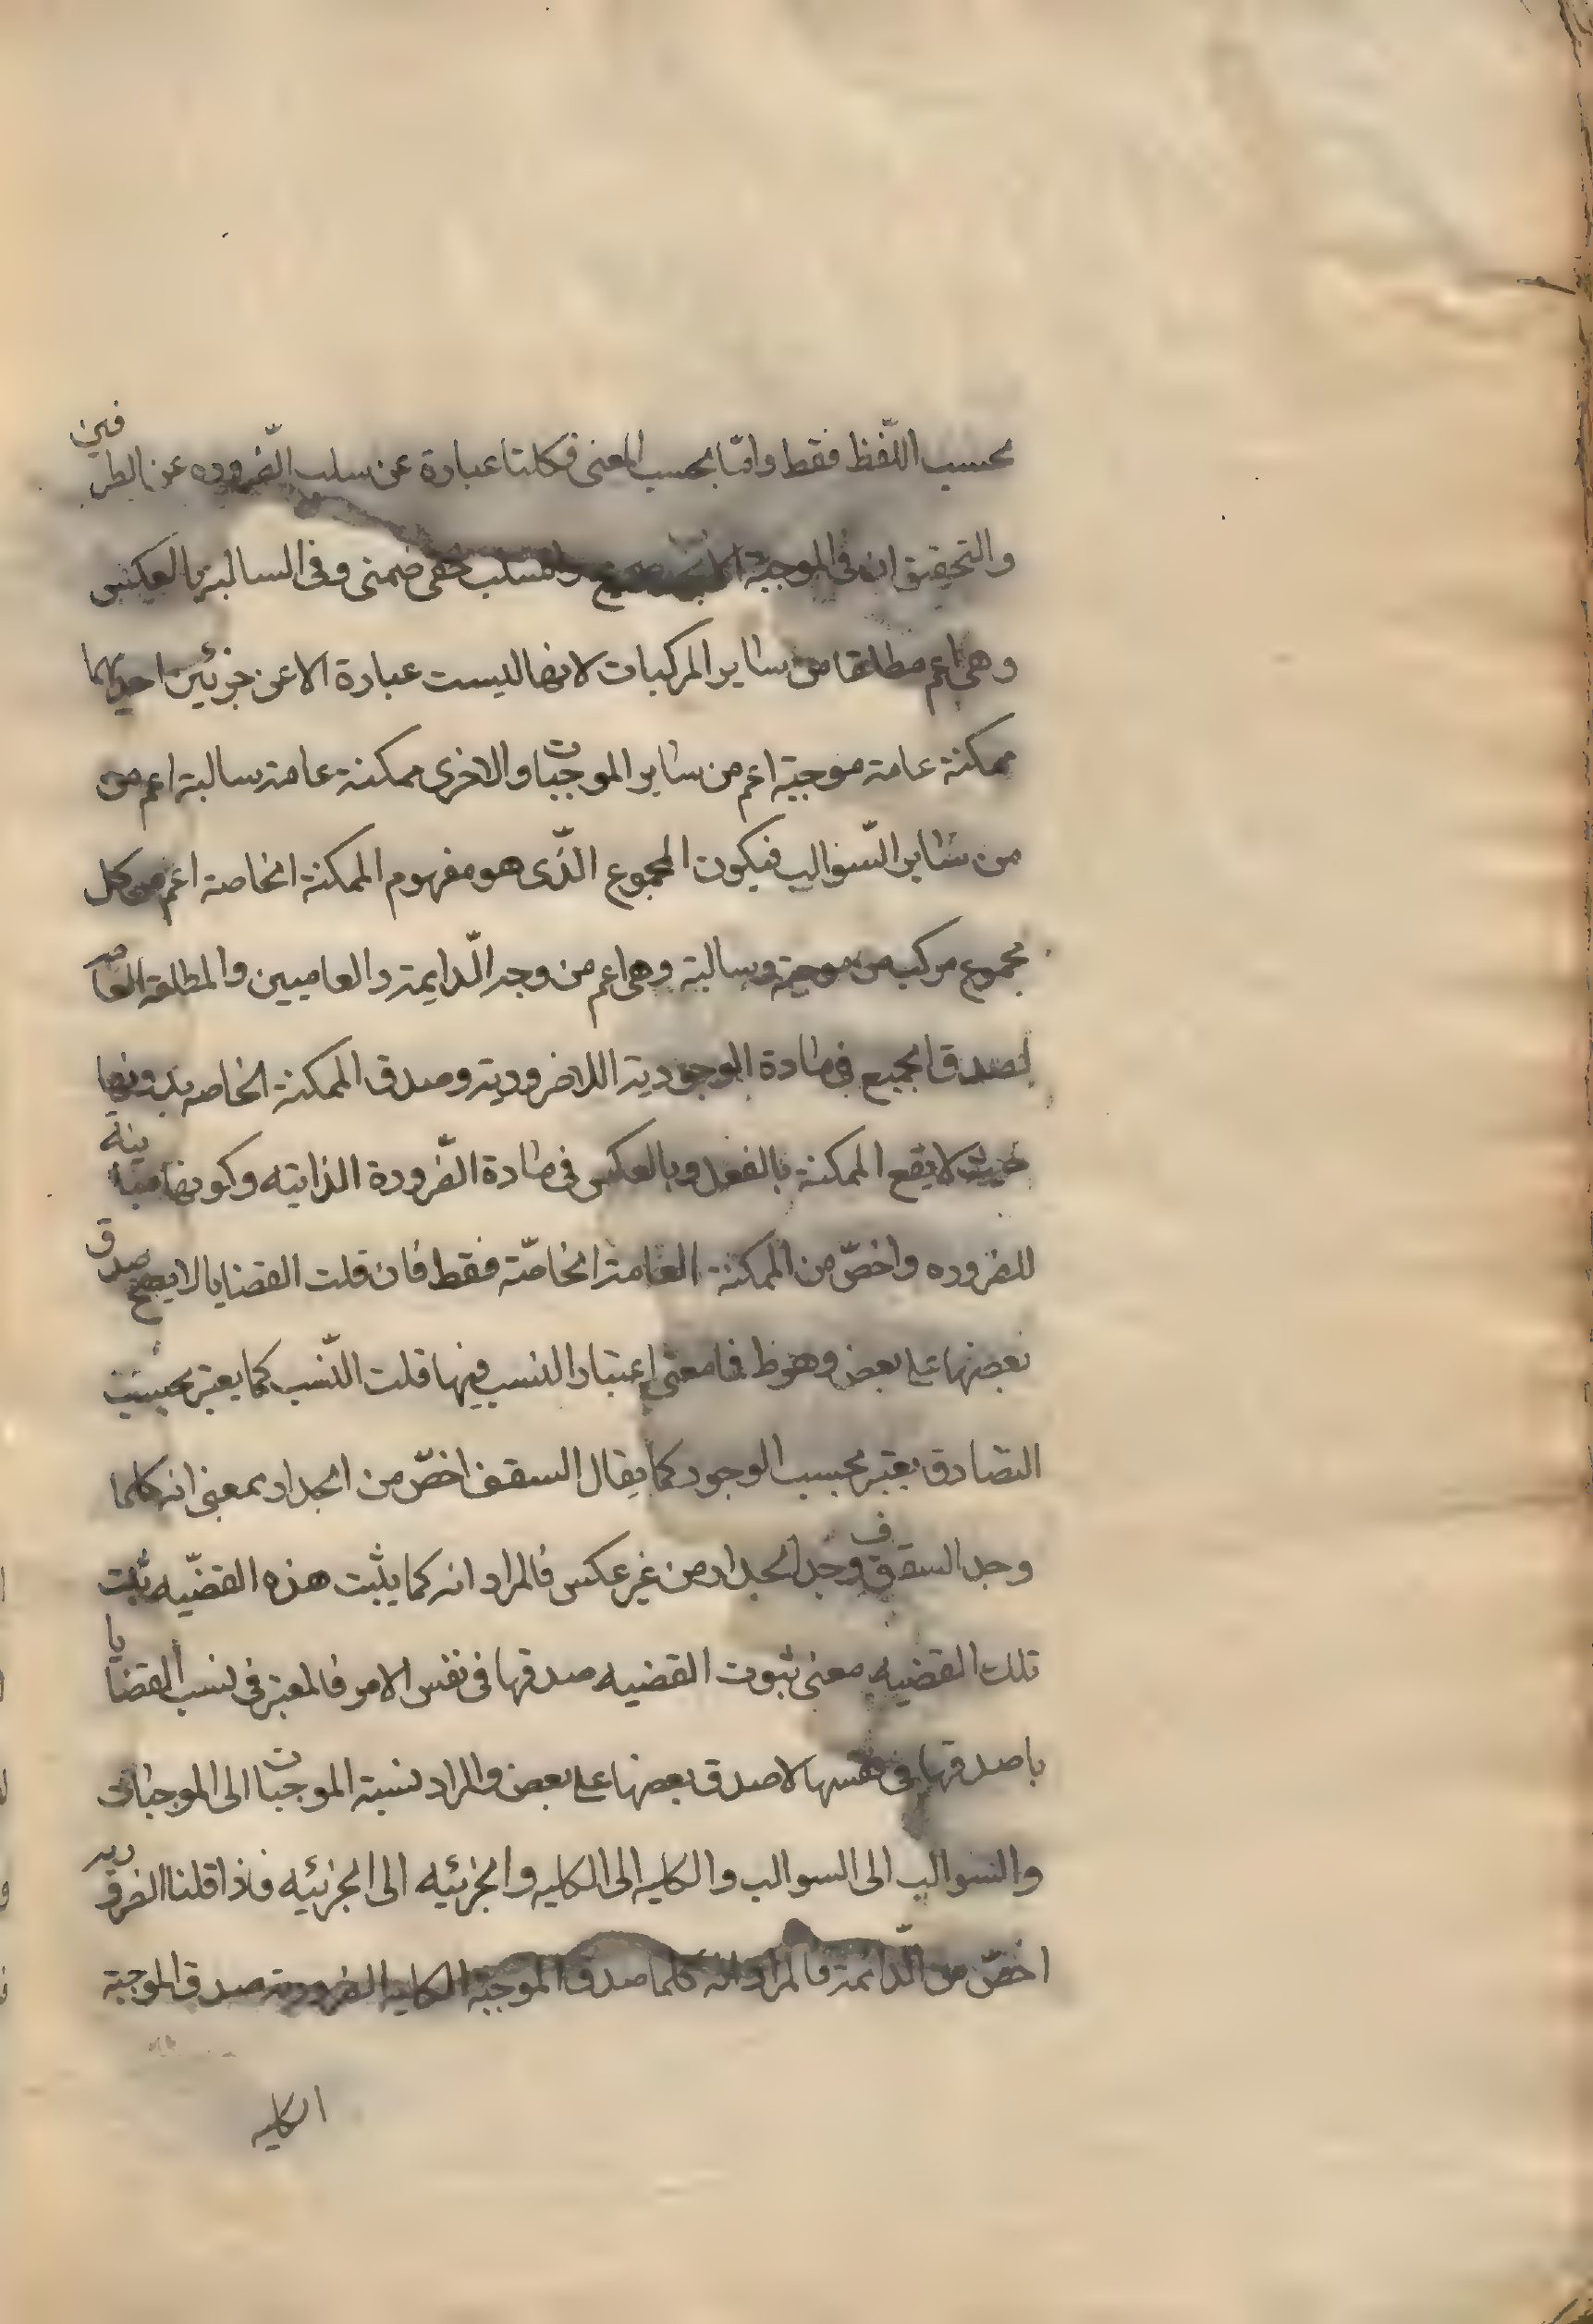 بحسب اللّفظ فقط وامّا بحسب المعنى فكلتا عبارة عن سلب الضّروره عن الطرفين
والتحقيق ان فى الموجبة والسلب خفى ضمنى وفى السالبة بالعكس
وهى اعم مطلقا من ساير المركبات لانها ليست عبارة الا عن جزئين احديهما
ممكنة عامة موجبة اعم من ساير الموجبات والاخرى ممكنة عامة سالبة اعم من
من ساير السّوالب فيكون المجموع الّذى هو مفهوم الممكنة الخاصة اعم من كل
مجموع مركب من موجبة وسالبة وهى اعم من وجه الّدايمة والعاميين والمطلقة العامه
لصدق الجميع فى مادة الوجودية اللاضرورية وصدق الممكنة الخاصه بدونها
حيث لا يقع الممكنة بالفعل وبالعكس فى مادة الضّرورة الذاتيه وكونها مباينة
للضروره واخصّ من الممكنة العامة الخاصّة فقط فان قلت القضايا لا يصح صدق
بعضها على بعض وهو ظ فما معنى اعتبار النسب فيها قلت النّسب كما يعتبر بحسب
التصادق يعتبر بحسب الوجود كما يقال السقف اخصّ من الجدار بمعنى انه كلما
وجد السقف وجد الجدار من غير عكس فالمراد انه كما يثبت هذه القضيّه يثبت
تلك القضيه معنى ثبوت القضيه صدقها فى نفس الامر فالمعتبر فى نسب القضايا
باصدقها فى نفسها لا صدق بعضها على بعض والمراد نسبة الموجبات الى الموجبات
والسوالب الى السوالب والكليه الى الكليه والجزئيه الى الجزئيه فاذا قلنا الضروريه
اخصّ من الّدائمة فالمراد انه كلما صدق الموجبة الكليه الضرورية صدق الموجبة
الكليه